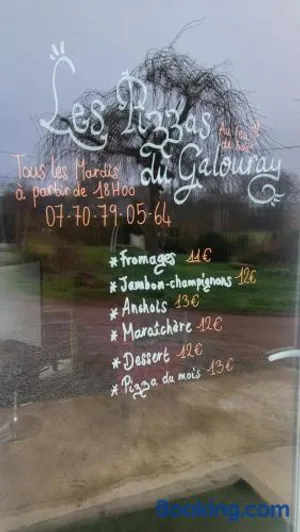 Les Pizzas
du Galouray
Tous les Mardis
à partir de 18H00
07-70-79-05-64
* Fromages 11€
* Jambon-champignons 12€
* Anchois 13€
* Maraîchère 12€
* Dessert 12€
* Pizza du mois 13€
Booking.com